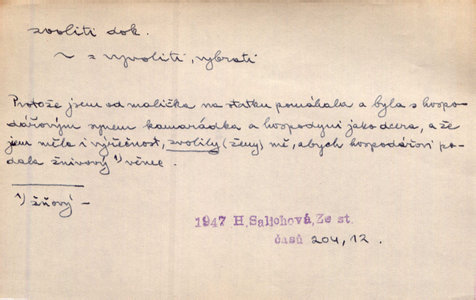 zvoliti dok.
~ = vyvoliti, vybrati
Protože jsem od malička na statku pomáhala a byla s hospo-
dářovým synem kamarádka a hospodyni jako dcera, a že
jsem měla i výřečnost, zvolily (ženy) mě, abych hospodářovi po-
dala žnivový ¹) věnec.
¹) žňový -
1947 H. Salichová, Ze st.
časů 204, 12.